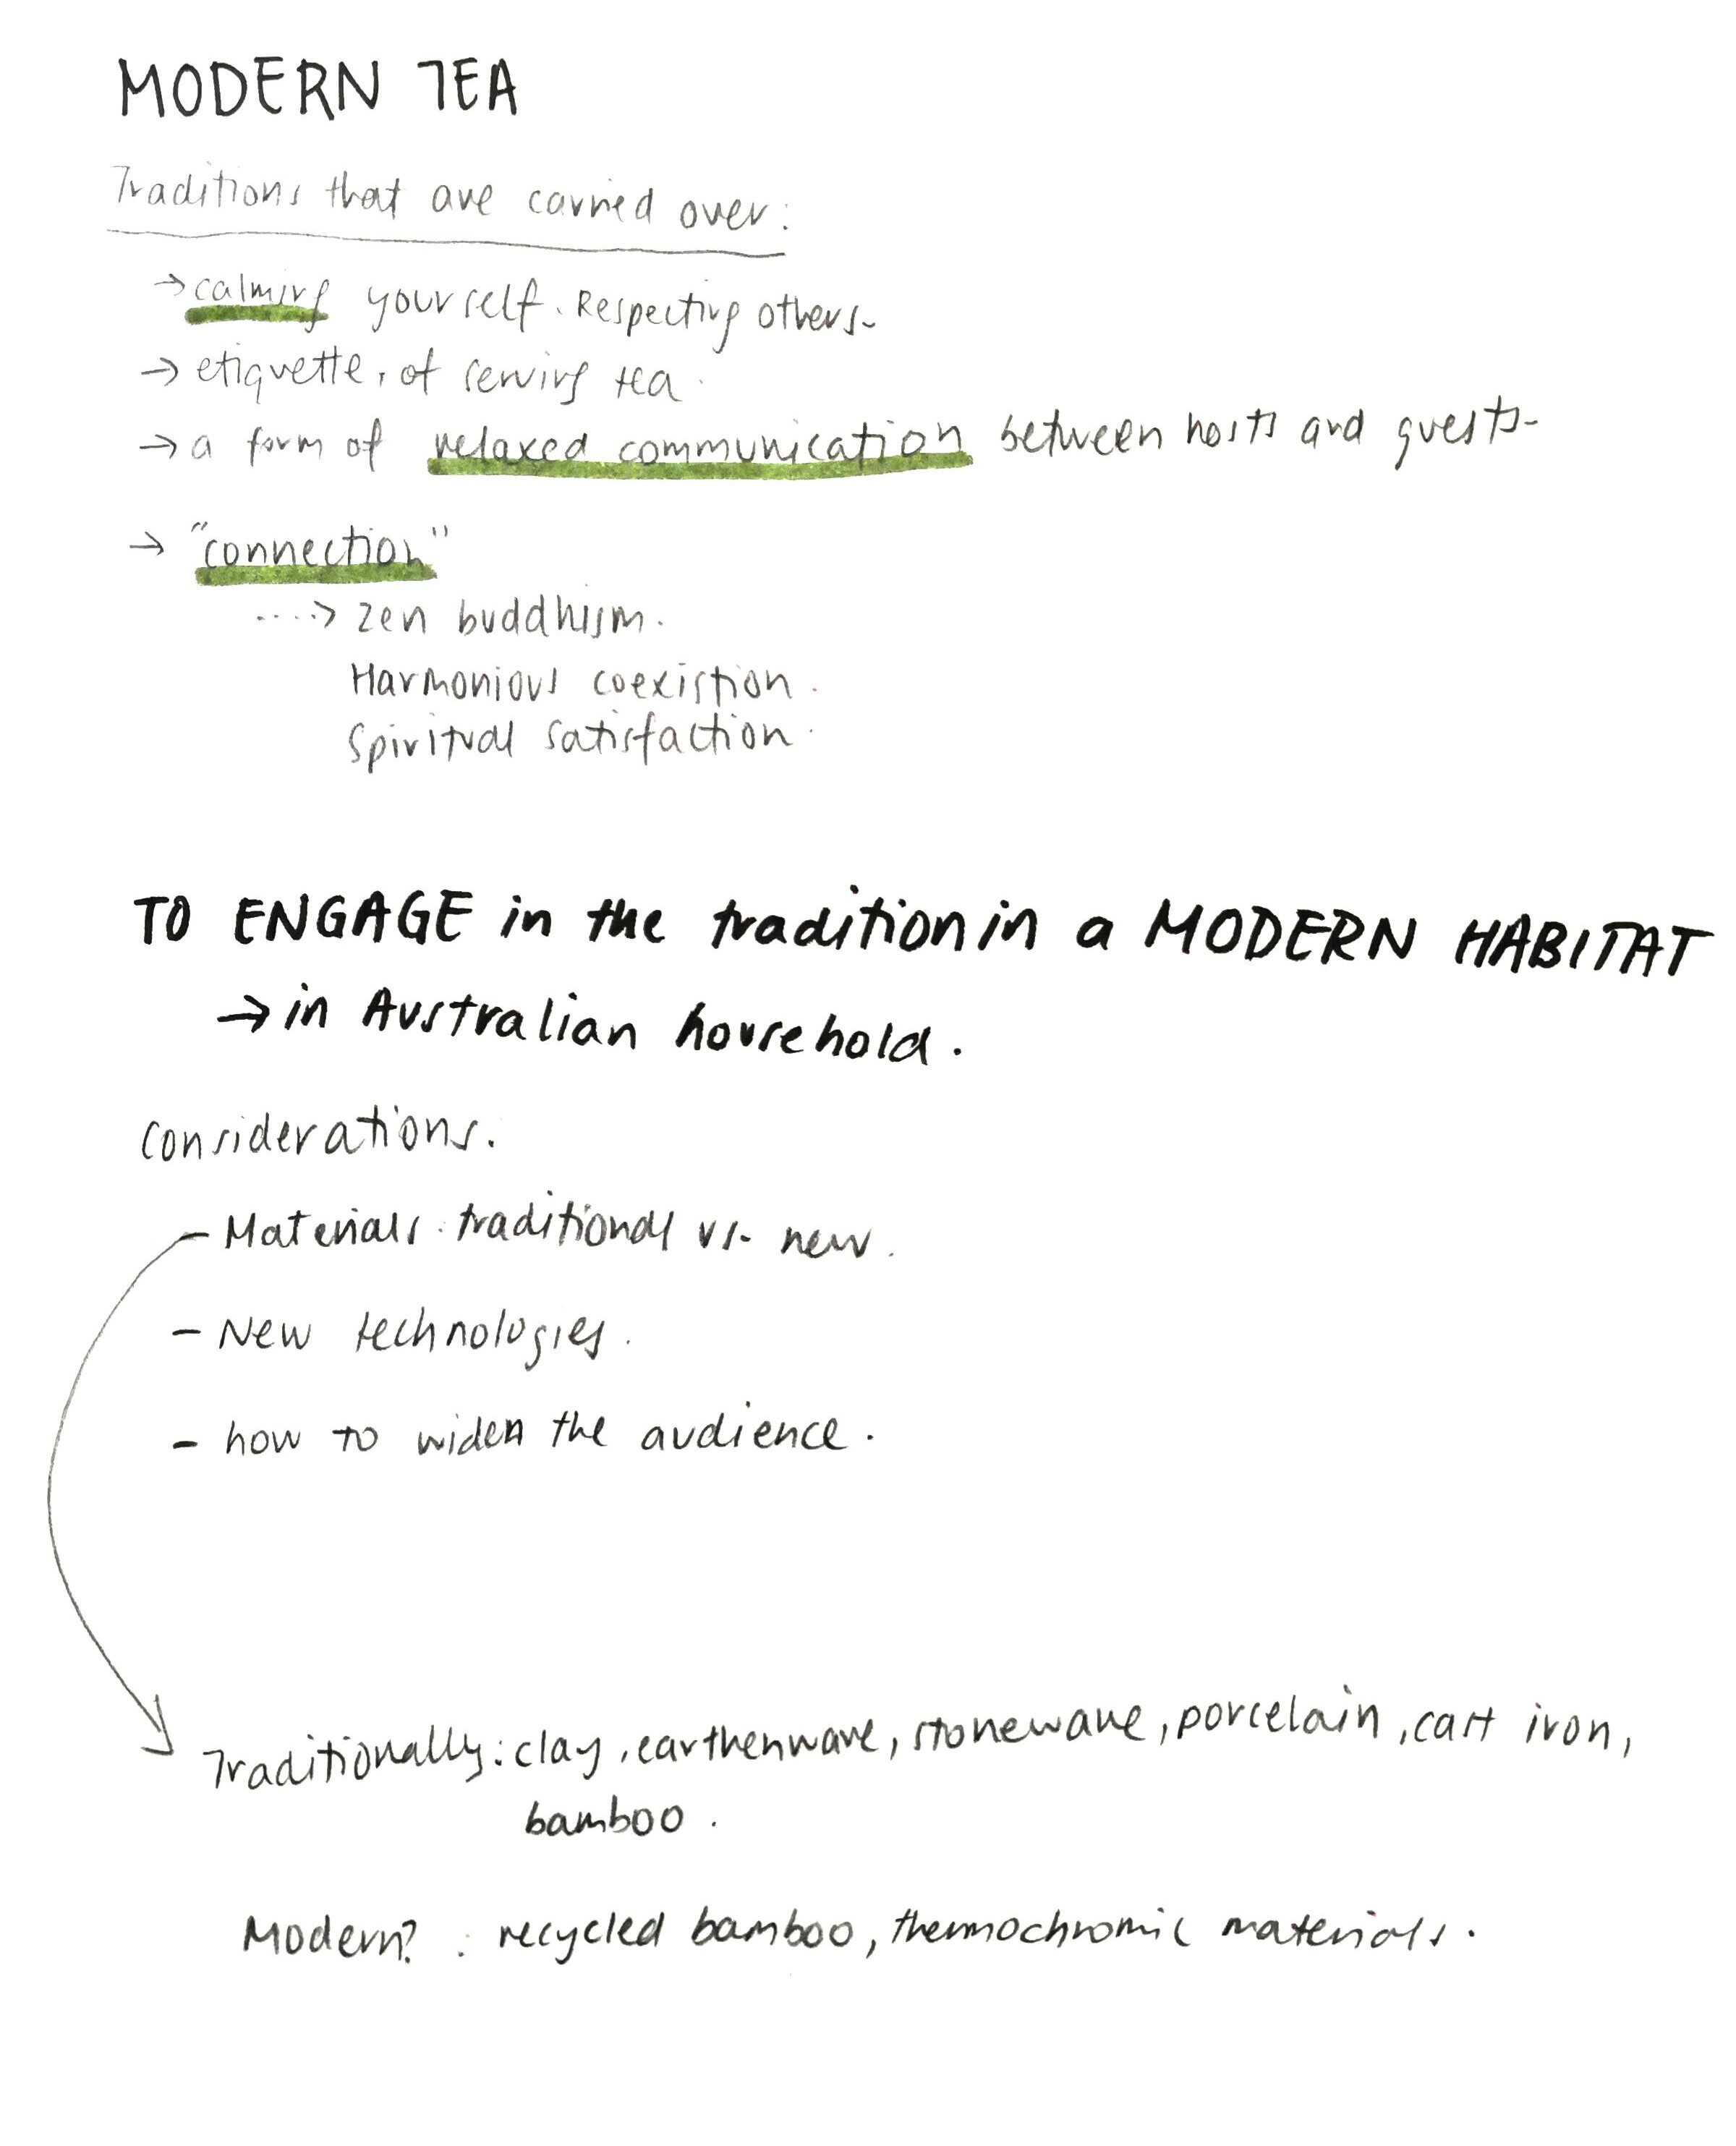 MODERN TEA
Traditions that are carried over:
→ calming yourself. Respecting others.
→ etiquette, of serving tea.
→ a form of relaxed communication between hosts and guests.
→ "connection"
....> zen buddhism.
Harmonious coexistion.
Spiritual satisfaction.
TO ENGAGE in the tradition in a MODERN HABITAT
→ in Australian household.
Considerations.
- Materials: traditional vs. new.
- New technologies.
- how to widen the audience.
Traditionally: clay, earthenware, stoneware, porcelain, cast iron,
bamboo.
Modern? : recycled bamboo, thermochromic materials.